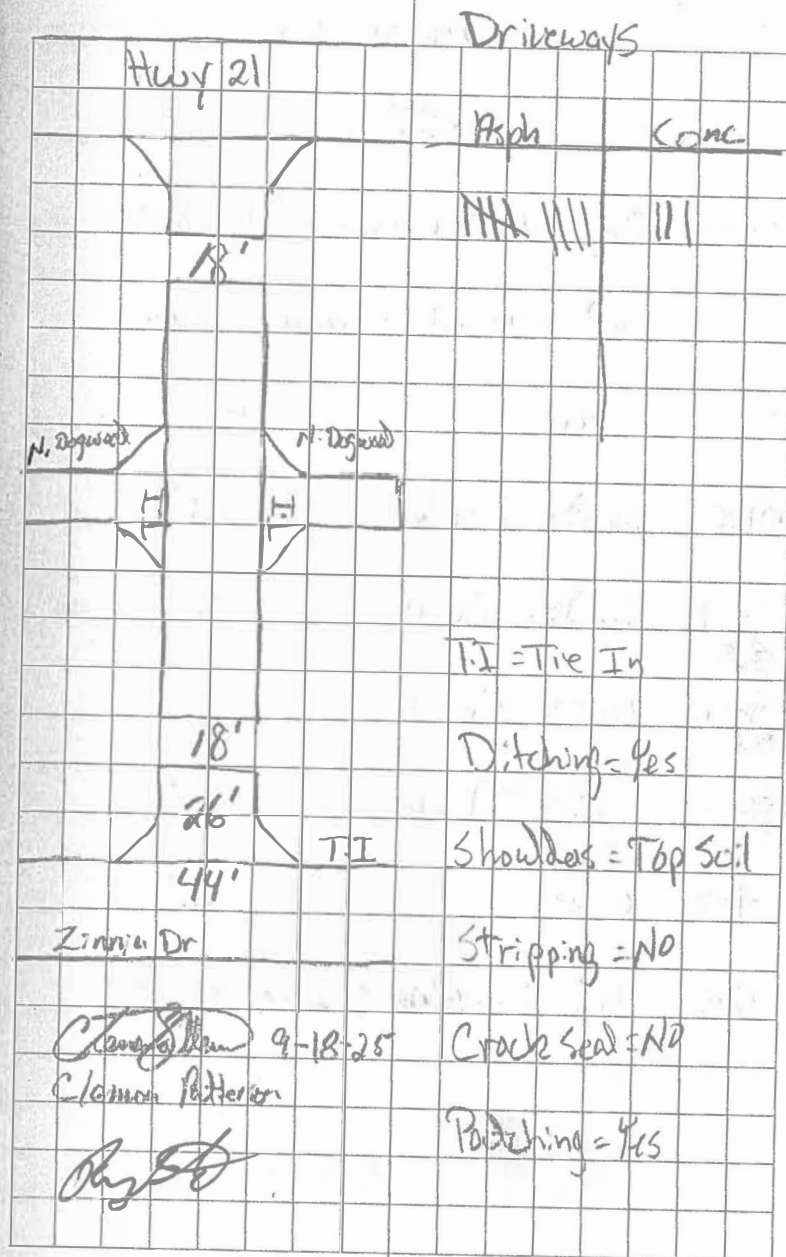 Driveways
Hwy 21
Asph
Conc.
18'
N. Dogwood
N. Dogwood
T.I
T.I
T.I = Tie In
18'
Ditching = Yes
26'
T.I
Shoulders = Top Soil
44'
Zinnia Dr
Stripping = NO
9-18-25
Crack Seal = NO
Patching = Yes